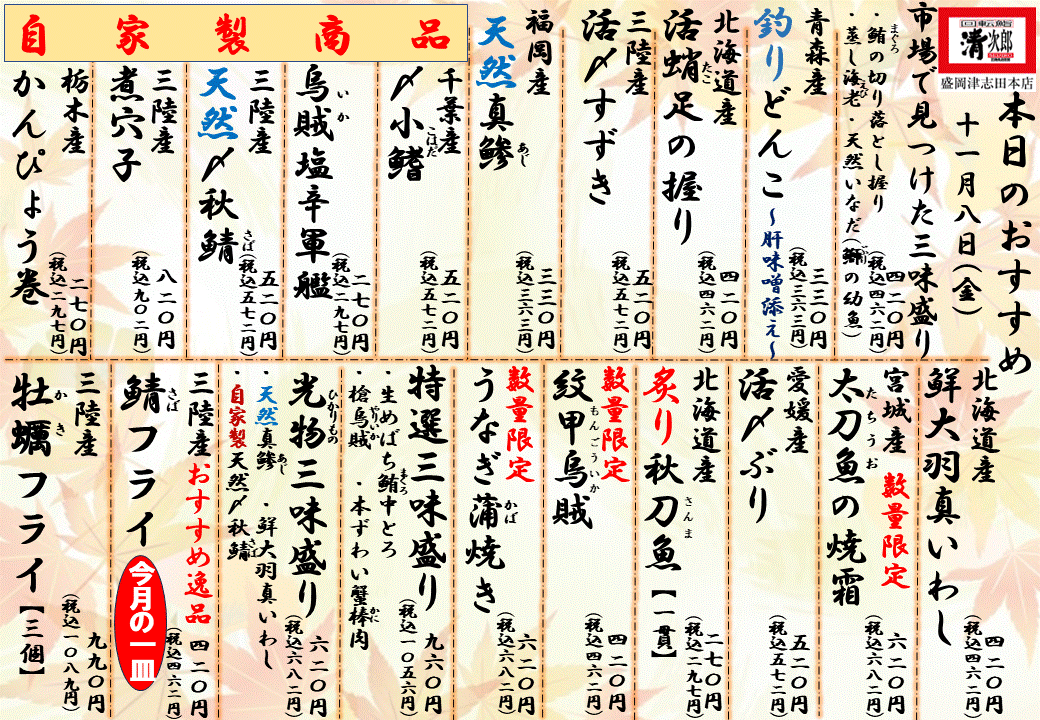 回転鮨
清次郎
SEIJIRO
盛岡津志田本店
本日のおすすめ
十一月八日(金)
市場で見つけた三味盛り
・鮪の切り落とし握り
まぐろ
・蒸し海老・天然いなだ(鰤の幼魚)
えび
ぶり
四二〇円
(税込四六二円)
青森産
釣りどんこ~肝味噌添え~
三三〇円
(税込三六三円)
北海道産
活蛸足の握り
たこ
四二〇円
(税込四六二円)
三陸産
活〆すずき
五二〇円
(税込五七二円)
福岡産
天然真鯵
あじ
三三〇円
(税込三六三円)
自家製商品
千葉産
〆小鰭
こはだ
五二〇円
(税込五七二円)
烏賊塩辛軍艦
いか
二七〇円
(税込二九七円)
三陸産
天然〆秋鯖
さば
五二〇円
(税込五七二円)
三陸産
煮穴子
八二〇円
(税込九〇二円)
栃木産
かんぴょう巻
二七〇円
(税込二九七円)
北海道産
鮮大羽真いわし
四二〇円
(税込四六二円)
宮城産 数量限定
太刀魚の焼霜
たちうお
六二〇円
(税込六八二円)
愛媛産
活〆ぶり
五二〇円
(税込五七二円)
北海道産
炙り秋刀魚【一貫】
さんま
二七〇円
(税込二九七円)
数量限定
紋甲烏賊
もんごういか
四二〇円
(税込四六二円)
数量限定
うなぎ蒲焼き
かば
六二〇円
(税込六八二円)
特選三味盛り
・生めばち鮪中とろ
まぐろ
・槍烏賊 ・本ずわい蟹棒肉
やりいか
かに
九六〇円
(税込一〇五六円)
光物三味盛り
ひかりもの
・天然真鯵 ・鮮大羽真いわし
あじ
・自家製天然〆秋鯖
さば
六二〇円
(税込六八二円)
三陸産おすすめ逸品
鯖フライ
さば
今月の一皿
四二〇円
(税込四六二円)
三陸産
牡蠣フライ【三個】
かき
九九〇円
(税込一〇八九円)